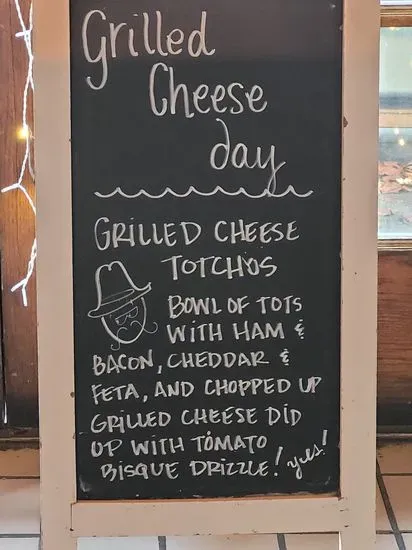 Grilled
Cheese
day
GRILLED CHEESE
TOTCHOS
BOWL OF TOTS
WITH HAM &
BACON, CHEDDAR &
FETA, AND CHOPPED UP
GRILLED CHEESE DID
UP WITH TOMATO
BISQUE DRIZZLE! yes!